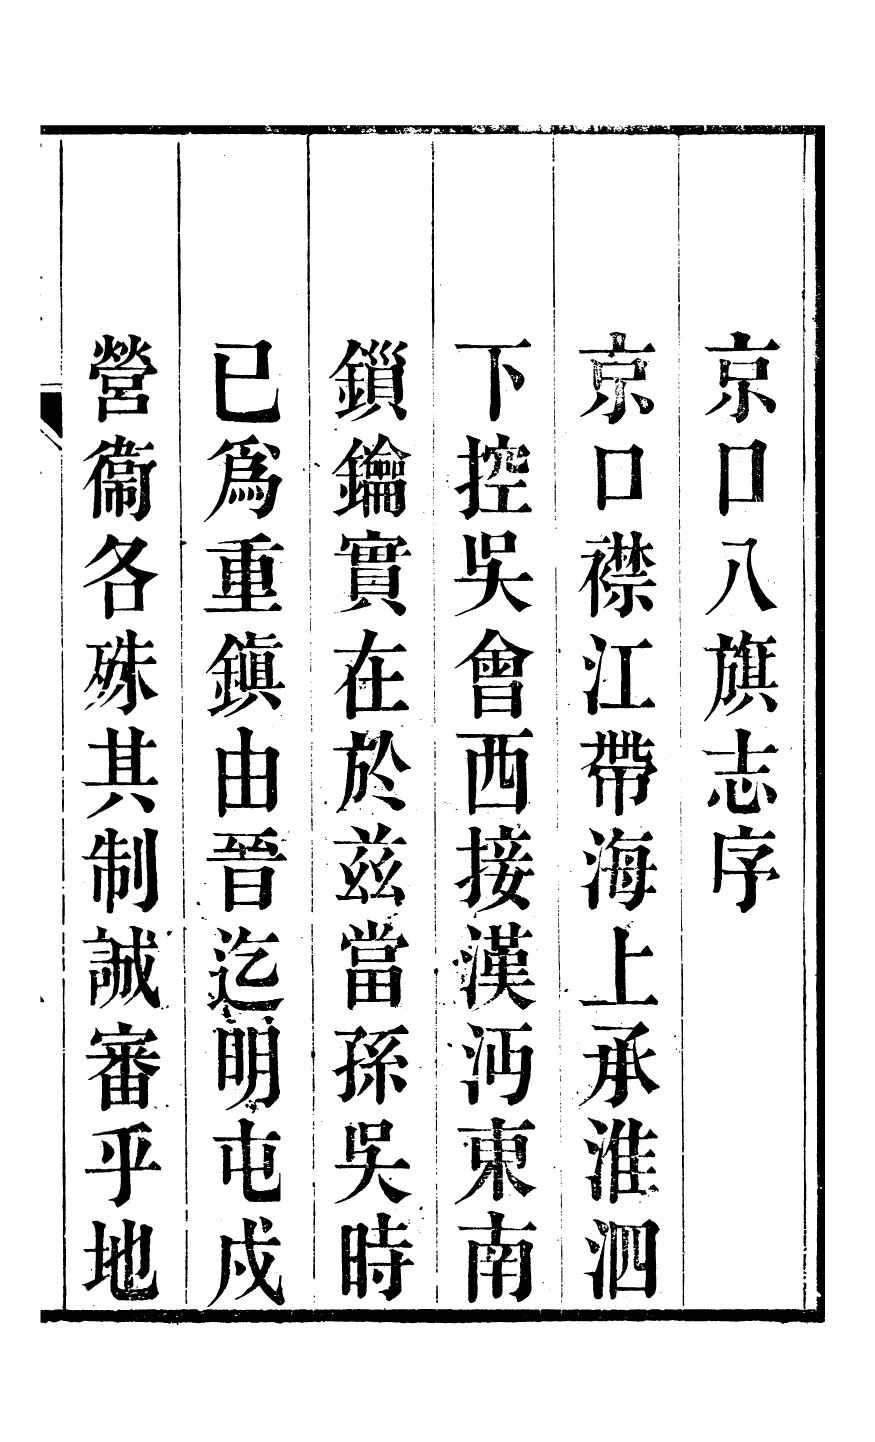 京口八旗志序
京口襟江帶海上承淮泗
下控吳會西接漢沔東南
鎻鑰實在於茲當孫吳時
已爲重鎭由晉迄明屯戍
營衞各殊其制誠審乎地